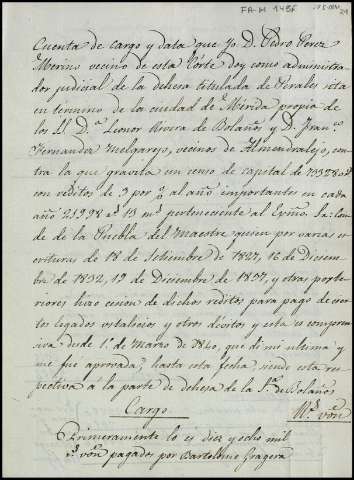 FA-M 149F
Cuenta de cargo y data que yo D. Pedro Perez
Merino vecino de esta Córte doy como administra
dor judicial de la dehesa titulada de Perales sita
en termino de la ciudad de Mérida propia de
los Sr. D.ª Leonor Rivera de Bolaños y D. Fran.co
Fernandez Melgarejo, vecinos de Almendralejo, con
tra la que gravita un censo de capital de
con reditos de 3 por % al año importantes en cada
año 21,998 r.s 13 m.s perteneciente al Exmo. Sr. Con
de de la Puebla del Maestre quien por varias es
crituras de 18 de Setiembre de 1827, 16 de Diciem
bre de 1832, 19 de Diciembre de 1837, y otras poste
riores hizo cesion de dichos reditos para pago de cier
tos legados vitalicios y otros deudos y esta es compren
siva desde 1.º de Marzo de 1840, que dí mi ultima y
me fué aprovada, hasta esta fecha, siendo esta res
pectiva á la parte de dehesa de la S.ra de Bolaños
Cargo R.s von
Primeramente lo es diez y ocho mil
r.s von pagados por Bartolomé Gragera